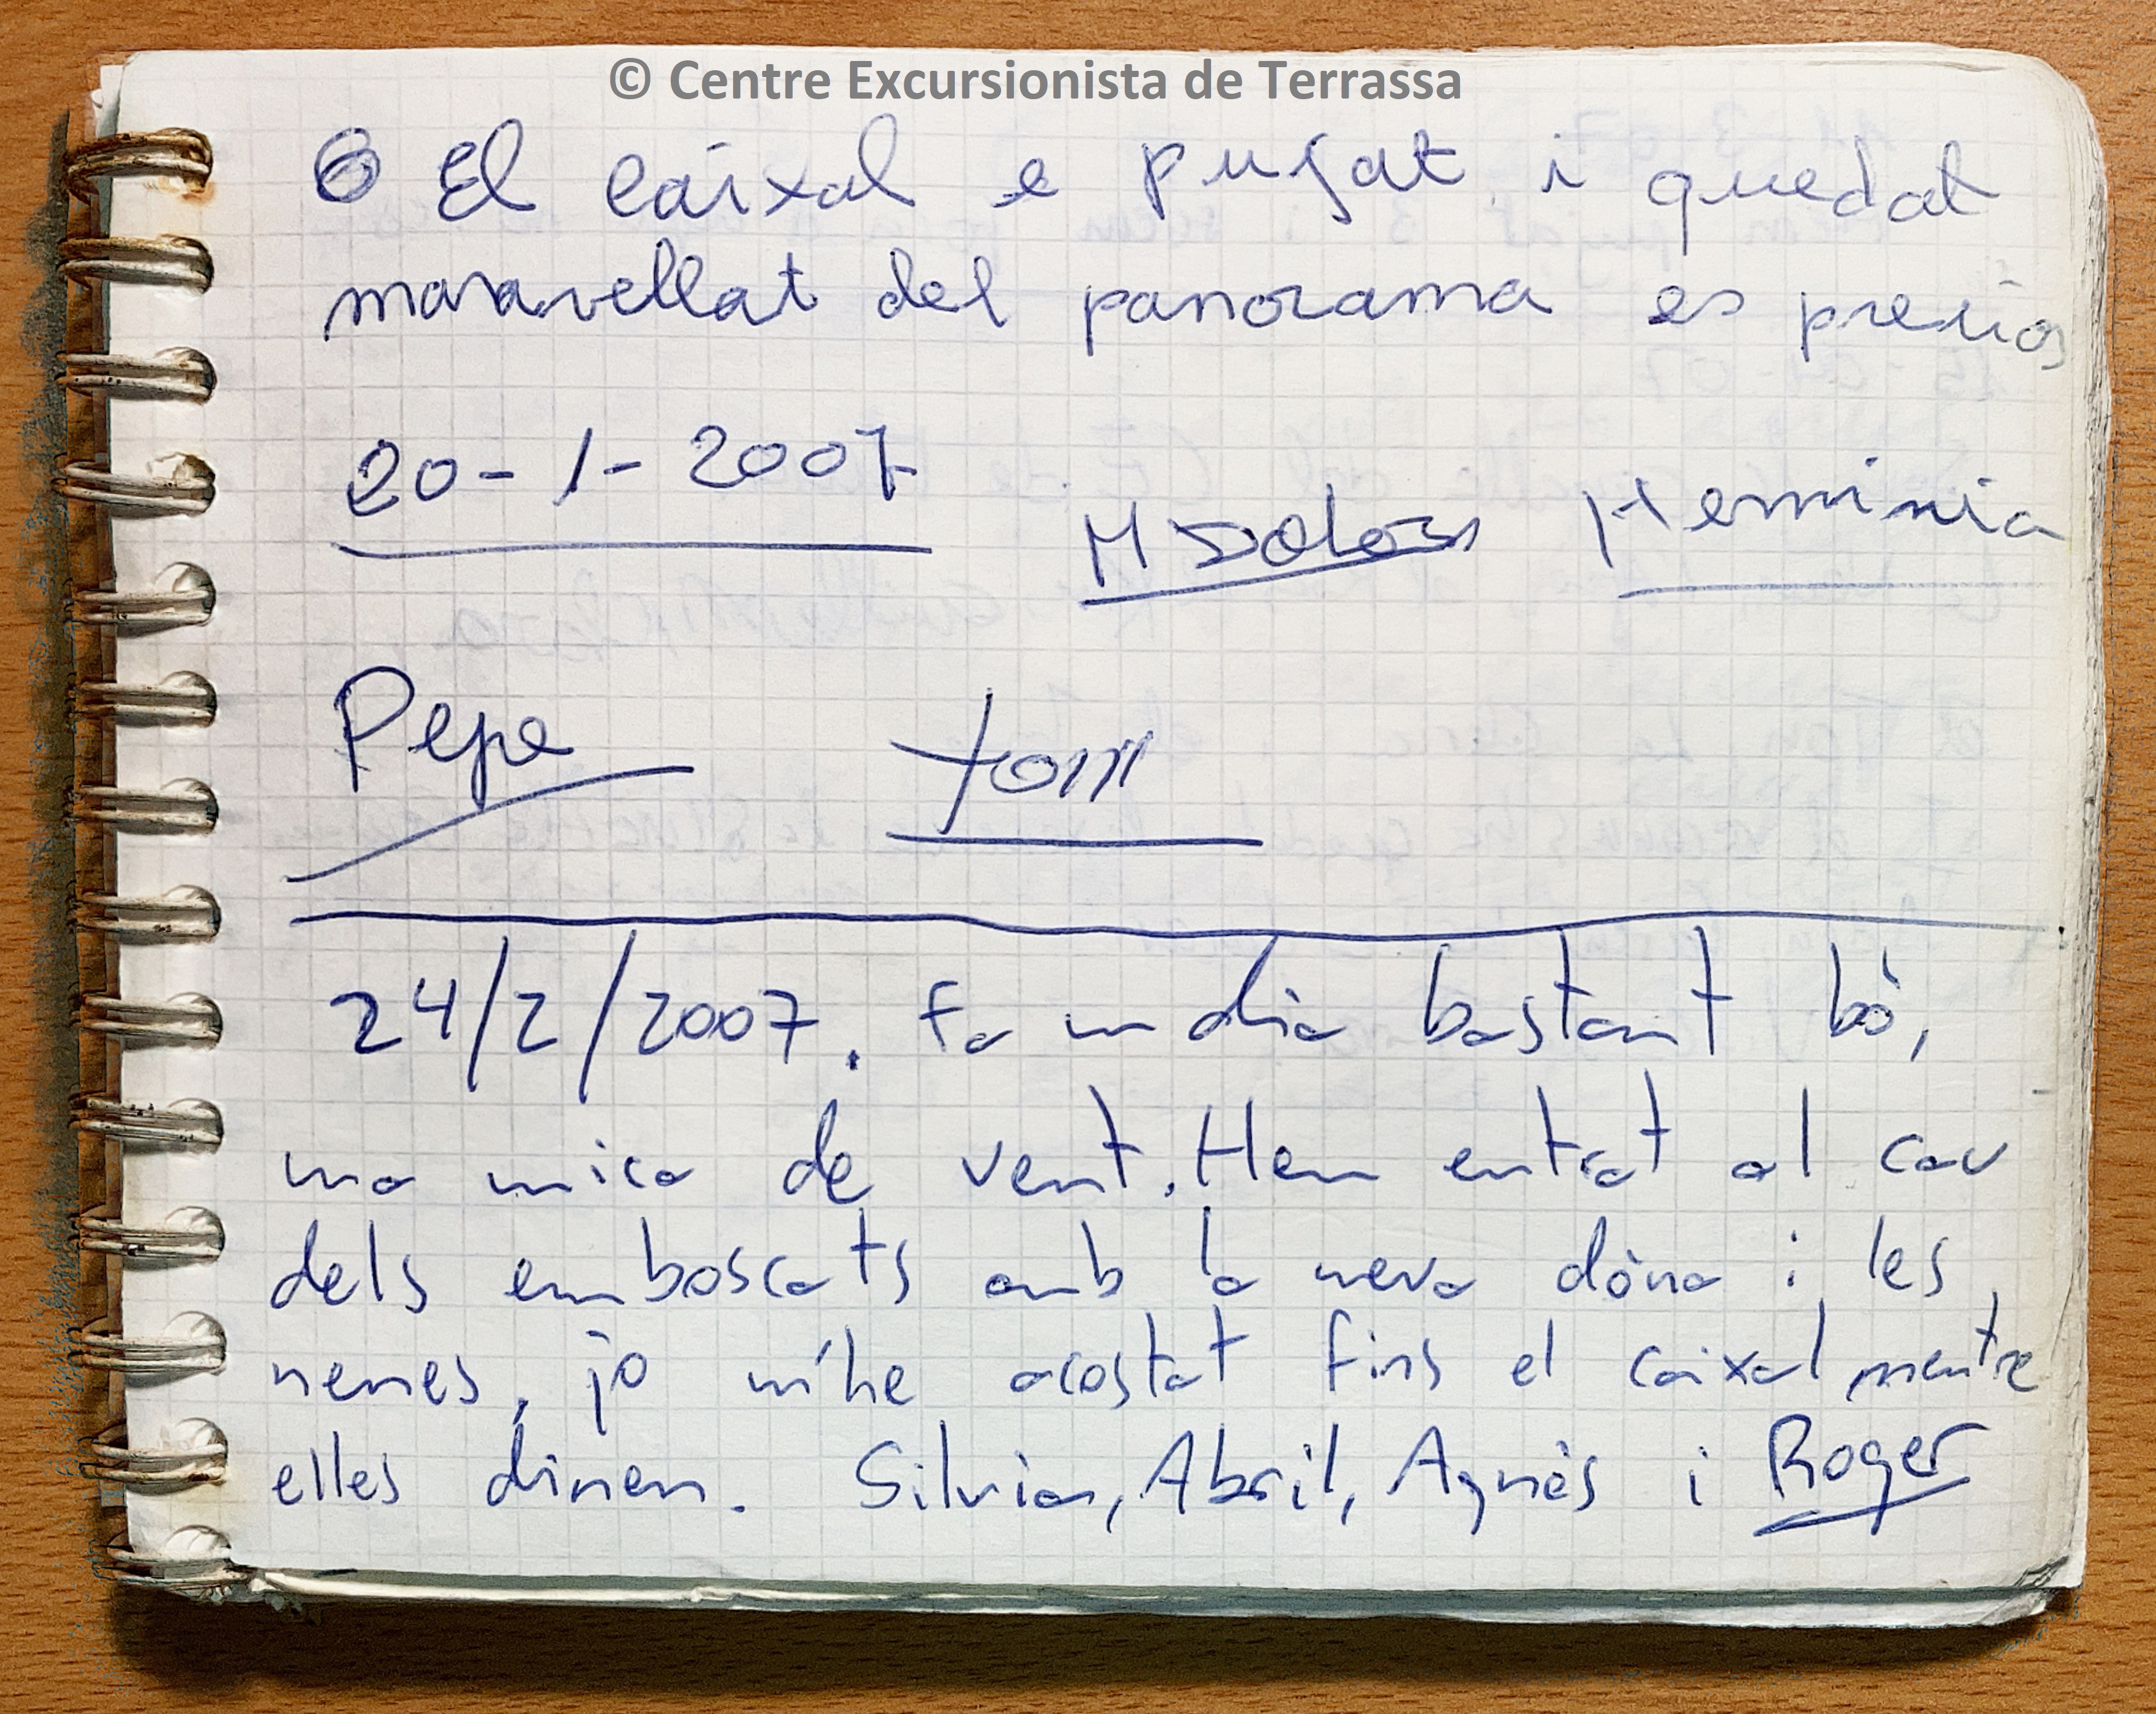 © Centre Excursionista de Terrassa
El caixal e pujat i quedat
maravellat del panorama es precios
20-1-2007
M Dolors Herminia
Pepe Toni
24/2/2007. Fa un dia bastant bò,
una mica de vent. Hem entrat al cau
dels emboscats amb la meva dòna i les
nenes, jo m'he acostat fins el caixal mentre
elles dinen. Silvia, Abril, Agnès i Roger